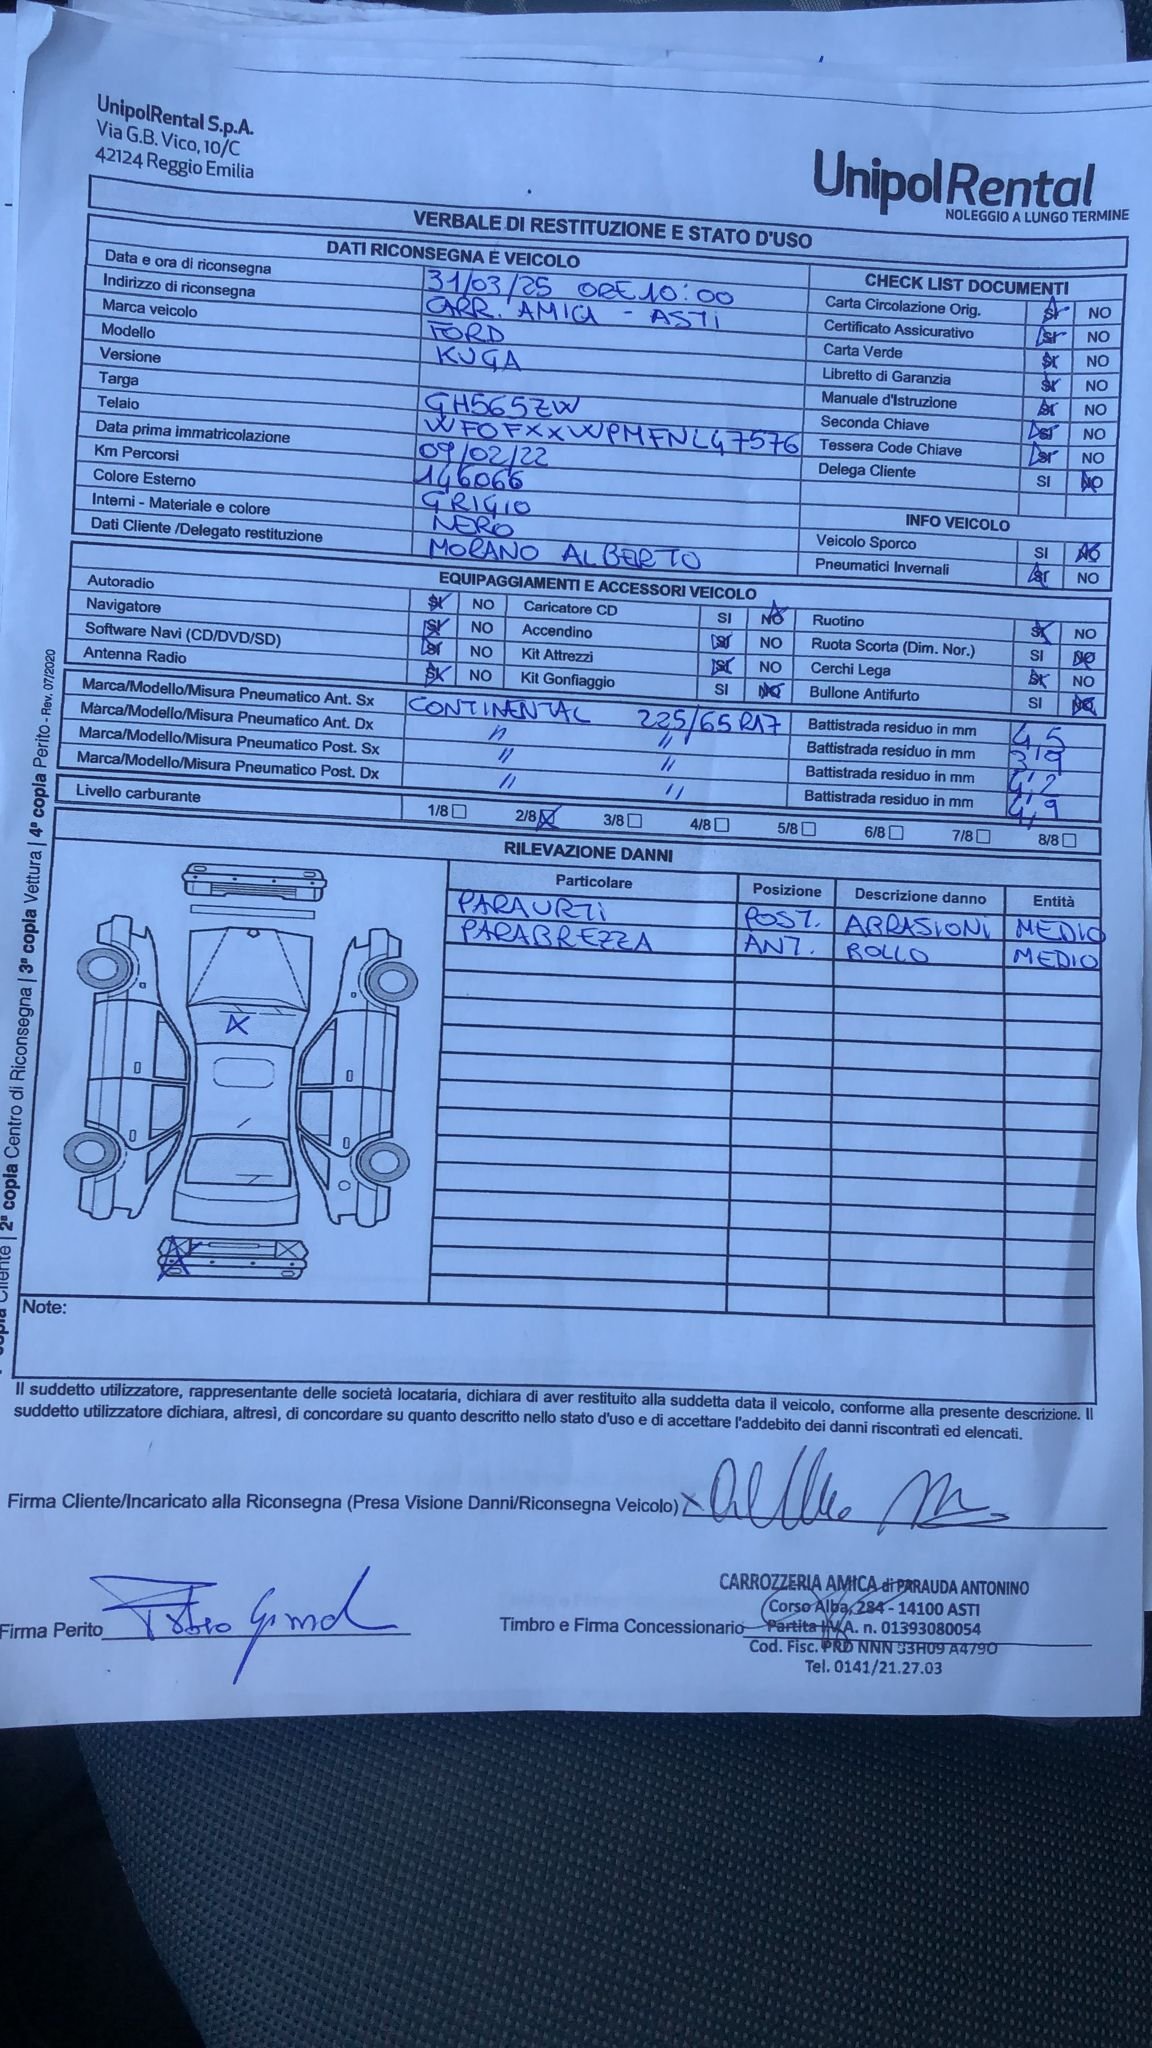 UnipolRental S.p.A.
Via G.B. Vico, 10/C
42124 Reggio Emilia
UnipolRental
NOLEGGIO A LUNGO TERMINE
VERBALE DI RESTITUZIONE E STATO D'USO
DATI RICONSEGNA E VEICOLO
Data e ora di riconsegna 31/03/25 ORE 10:00
Indirizzo di riconsegna CARR. AMICA - ASTI
Marca veicolo FORD
Modello KUGA
Versione
Targa GH565ZW
Telaio WF0FXXWPMFNL47576
Data prima immatricolazione 09/02/22
Km Percorsi 146066
Colore Esterno GRIGIO
Interni - Materiale e colore NERO
Dati Cliente /Delegato restituzione MORANO ALBERTO
CHECK LIST DOCUMENTI
Carta Circolazione Orig. SI NO
Certificato Assicurativo SI NO
Carta Verde SI NO
Libretto di Garanzia SI NO
Manuale d'Istruzione SI NO
Seconda Chiave SI NO
Tessera Code Chiave SI NO
Delega Cliente SI NO
INFO VEICOLO
Veicolo Sporco SI NO
Pneumatici Invernali SI NO
EQUIPAGGIAMENTI E ACCESSORI VEICOLO
Autoradio SI NO Caricatore CD SI NO Ruotino SI NO
Navigatore SI NO Accendino SI NO Ruota Scorta (Dim. Nor.) SI NO
Software Navi (CD/DVD/SD) SI NO Kit Attrezzi SI NO Cerchi Lega SI NO
Antenna Radio SI NO Kit Gonfiaggio SI NO Bullone Antifurto SI NO
Marca/Modello/Misura Pneumatico Ant. Sx CONTINENTAL 225/65 R17 Battistrada residuo in mm 4,5
Marca/Modello/Misura Pneumatico Ant. Dx " " Battistrada residuo in mm 3,9
Marca/Modello/Misura Pneumatico Post. Sx " " Battistrada residuo in mm 4,2
Marca/Modello/Misura Pneumatico Post. Dx " " Battistrada residuo in mm 4,9
Livello carburante 1/8 2/8 3/8 4/8 5/8 6/8 7/8 8/8
RILEVAZIONE DANNI
Particolare Posizione Descrizione danno Entità
PARAURTI POST. ABRASIONI MEDIO
PARABREZZA ANT. BOLLO MEDIO
Note:
Il suddetto utilizzatore, rappresentante delle società locataria, dichiara di aver restituito alla suddetta data il veicolo, conforme alla presente descrizione. Il
suddetto utilizzatore dichiara, altresì, di concordare su quanto descritto nello stato d'uso e di accettare l'addebito dei danni riscontrati ed elencati.
Firma Cliente/Incaricato alla Riconsegna (Presa Visione Danni/Riconsegna Veicolo)
Firma Perito
Timbro e Firma Concessionario
CARROZZERIA AMICA di PARAUDA ANTONINO
Corso Alba, 284 - 14100 ASTI
Partita I.V.A. n. 01393080054
Cod. Fisc. PRD NNN 53H09 A479O
Tel. 0141/21.27.03
copia Cliente | 2ª copia Centro di Riconsegna | 3ª copia Vettura | 4ª copia Perito - Rev. 07/2020